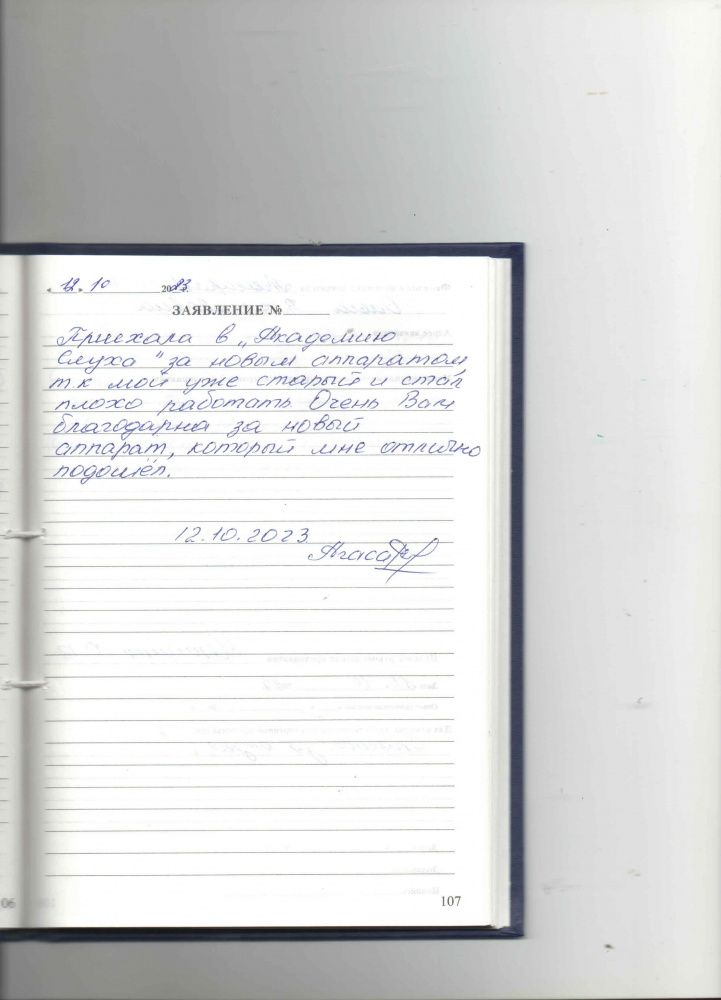 « 12 » 10 2023г.
ЗАЯВЛЕНИЕ №
Приехала в „Академию
Слуха" за новым аппаратом,
т.к мой уже старый и стал
плохо работать. Очень Вам
благодарна за новый
аппарат, который мне отлично
подошёл.
12.10.2023
107